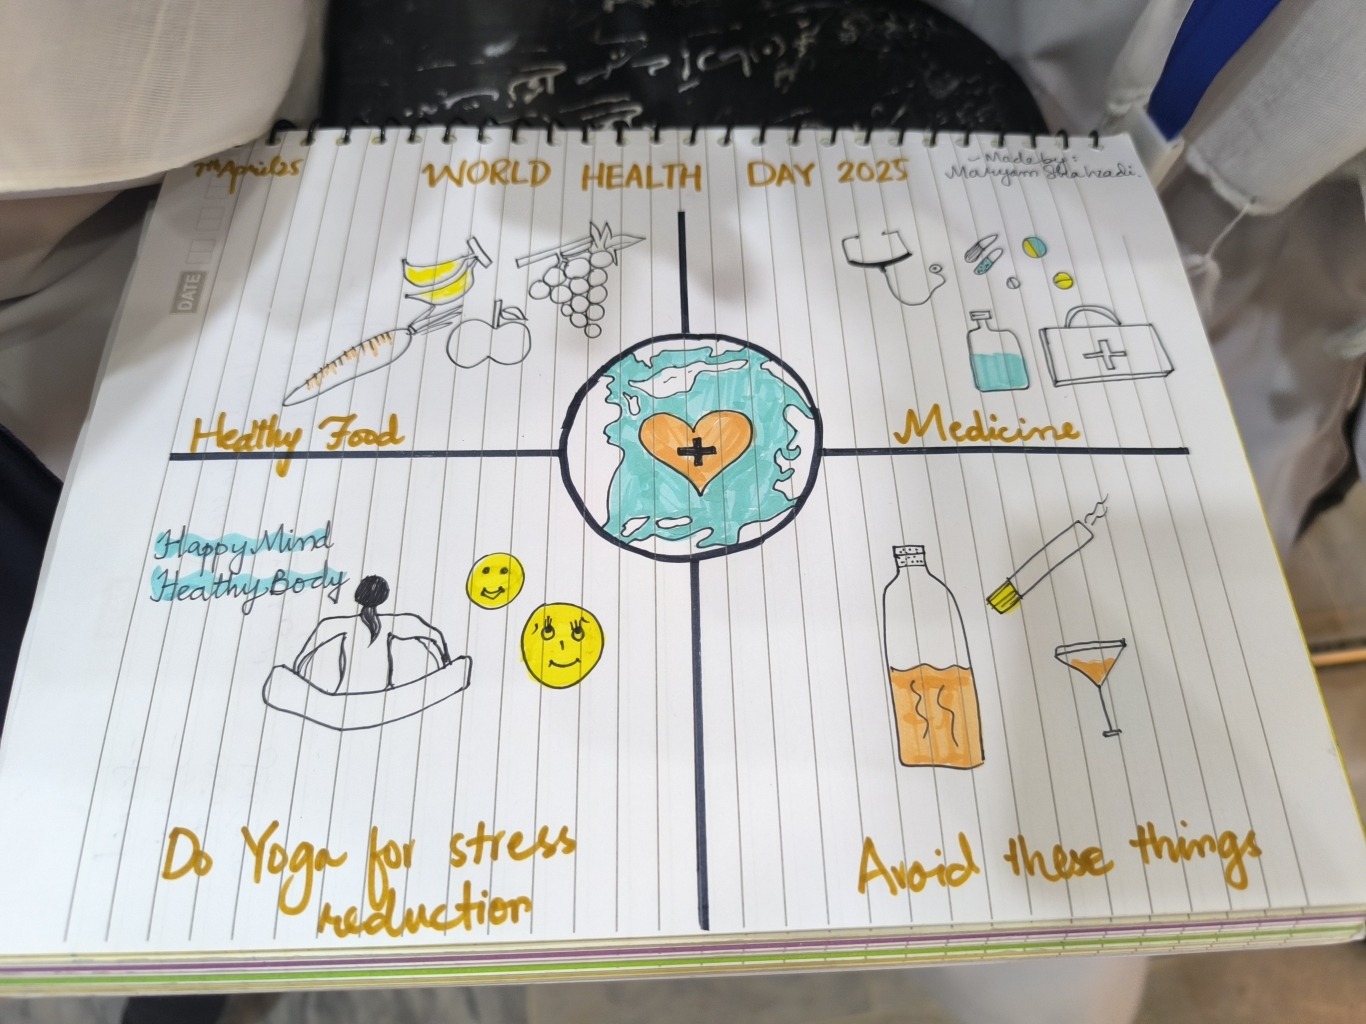 7th April 25
WORLD HEALTH DAY 2025
- Made by:
Maryam Shahzadi.
DATE
Healthy Food
Medicine
Happy Mind
Healthy Body
Do Yoga for stress
reduction
Avoid these things